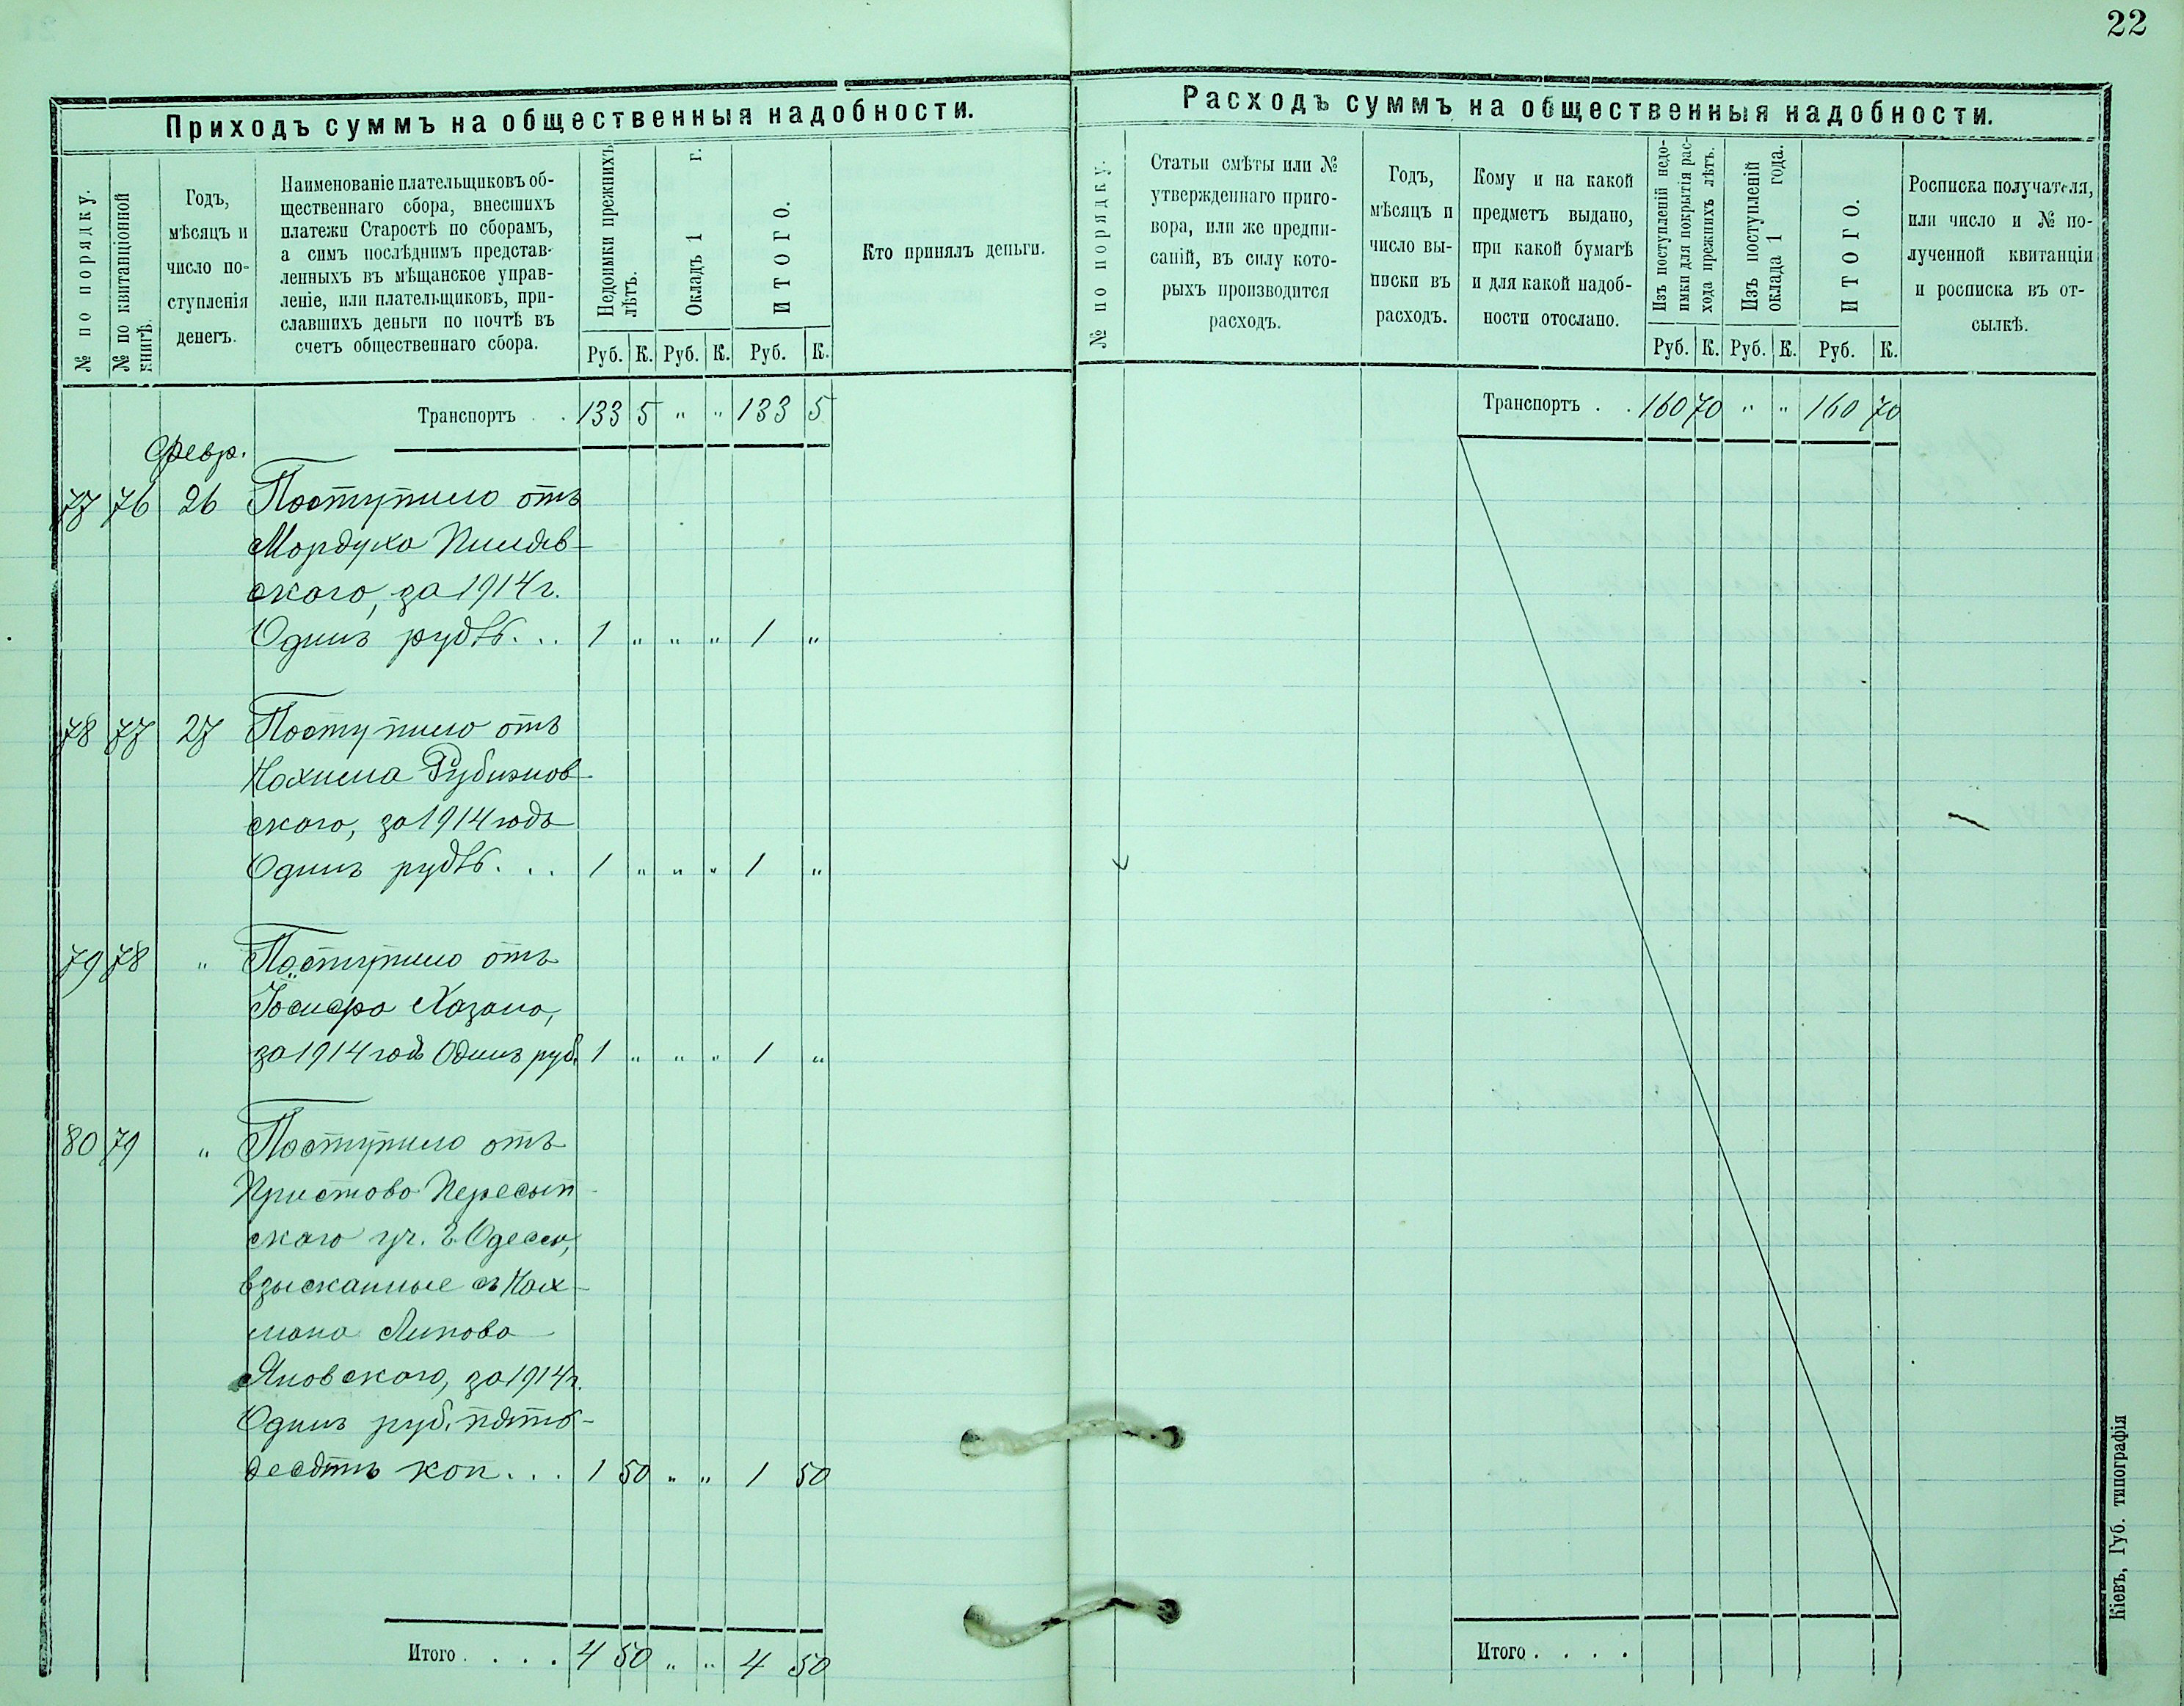 22
Приходъ суммъ на общественныя надобности.
№ по порядку.
№ по квитанціонной
книгѣ.
Годъ,
мѣсяцъ и
число по-
ступленія
денегъ.
Наименованіе плательщиковъ об-
щественнаго сбора, внесшихъ
платежи Старостѣ по сборамъ,
а симъ послѣднимъ представ-
ленныхъ въ мѣщанское управ-
леніе, или плательщиковъ, при-
славшихъ деньги по почтѣ въ
счетъ общественнаго сбора.
Недоимки прежнихъ
лѣтъ.
Окладъ 1 г.
ИТОГО.
Кто принялъ деньги.
Руб. К. Руб. К. Руб. К.
Транспортъ . . 133 5 " " 133 5
Февр.
77 76 26 Поступило отъ
Мордуха Пиляв-
ского, за 1914 г.
Одинъ рубль. . . 1 " " " 1 "
78 77 27 Поступило отъ
Нахима Рубижнов-
ского, за 1914 годъ
Одинъ рубль. . . 1 " " " 1 "
79 78 " Поступило отъ
Іосифа Хазана,
за 1914 годъ Одинъ руб. 1 " " " 1 "
80 79 " Поступило отъ
Пристава Пересып-
скаго уч. г. Одессы,
взысканные съ Нах-
мана Липова
Яновского, за 1914 г.
Одинъ руб. пять-
десятъ коп. . . 1 50 " " 1 50
Итого. . . . 4 50 " " 4 50
Расходъ суммъ на общественныя надобности.
№ по порядку.
Статьи смѣты или №
утвержденнаго приго-
вора, или же предпи-
саній, въ силу кото-
рыхъ производится
расходъ.
Годъ,
мѣсяцъ и
число вы-
писки въ
расходъ.
Кому и на какой
предметъ выдано,
при какой бумагѣ
и для какой надоб-
ности отослано.
Изъ поступленій недо-
имки для покрытія рас-
хода прежнихъ лѣтъ.
Изъ поступленій
оклада 1 года.
ИТОГО.
Росписка получателя,
или число и № по-
лученной квитанціи
и росписка въ от-
сылкѣ.
Руб. К. Руб. К. Руб. К.
Транспортъ . . 160 70 " " 160 70
Итого . . . .
Кіевъ, Губ. типографія